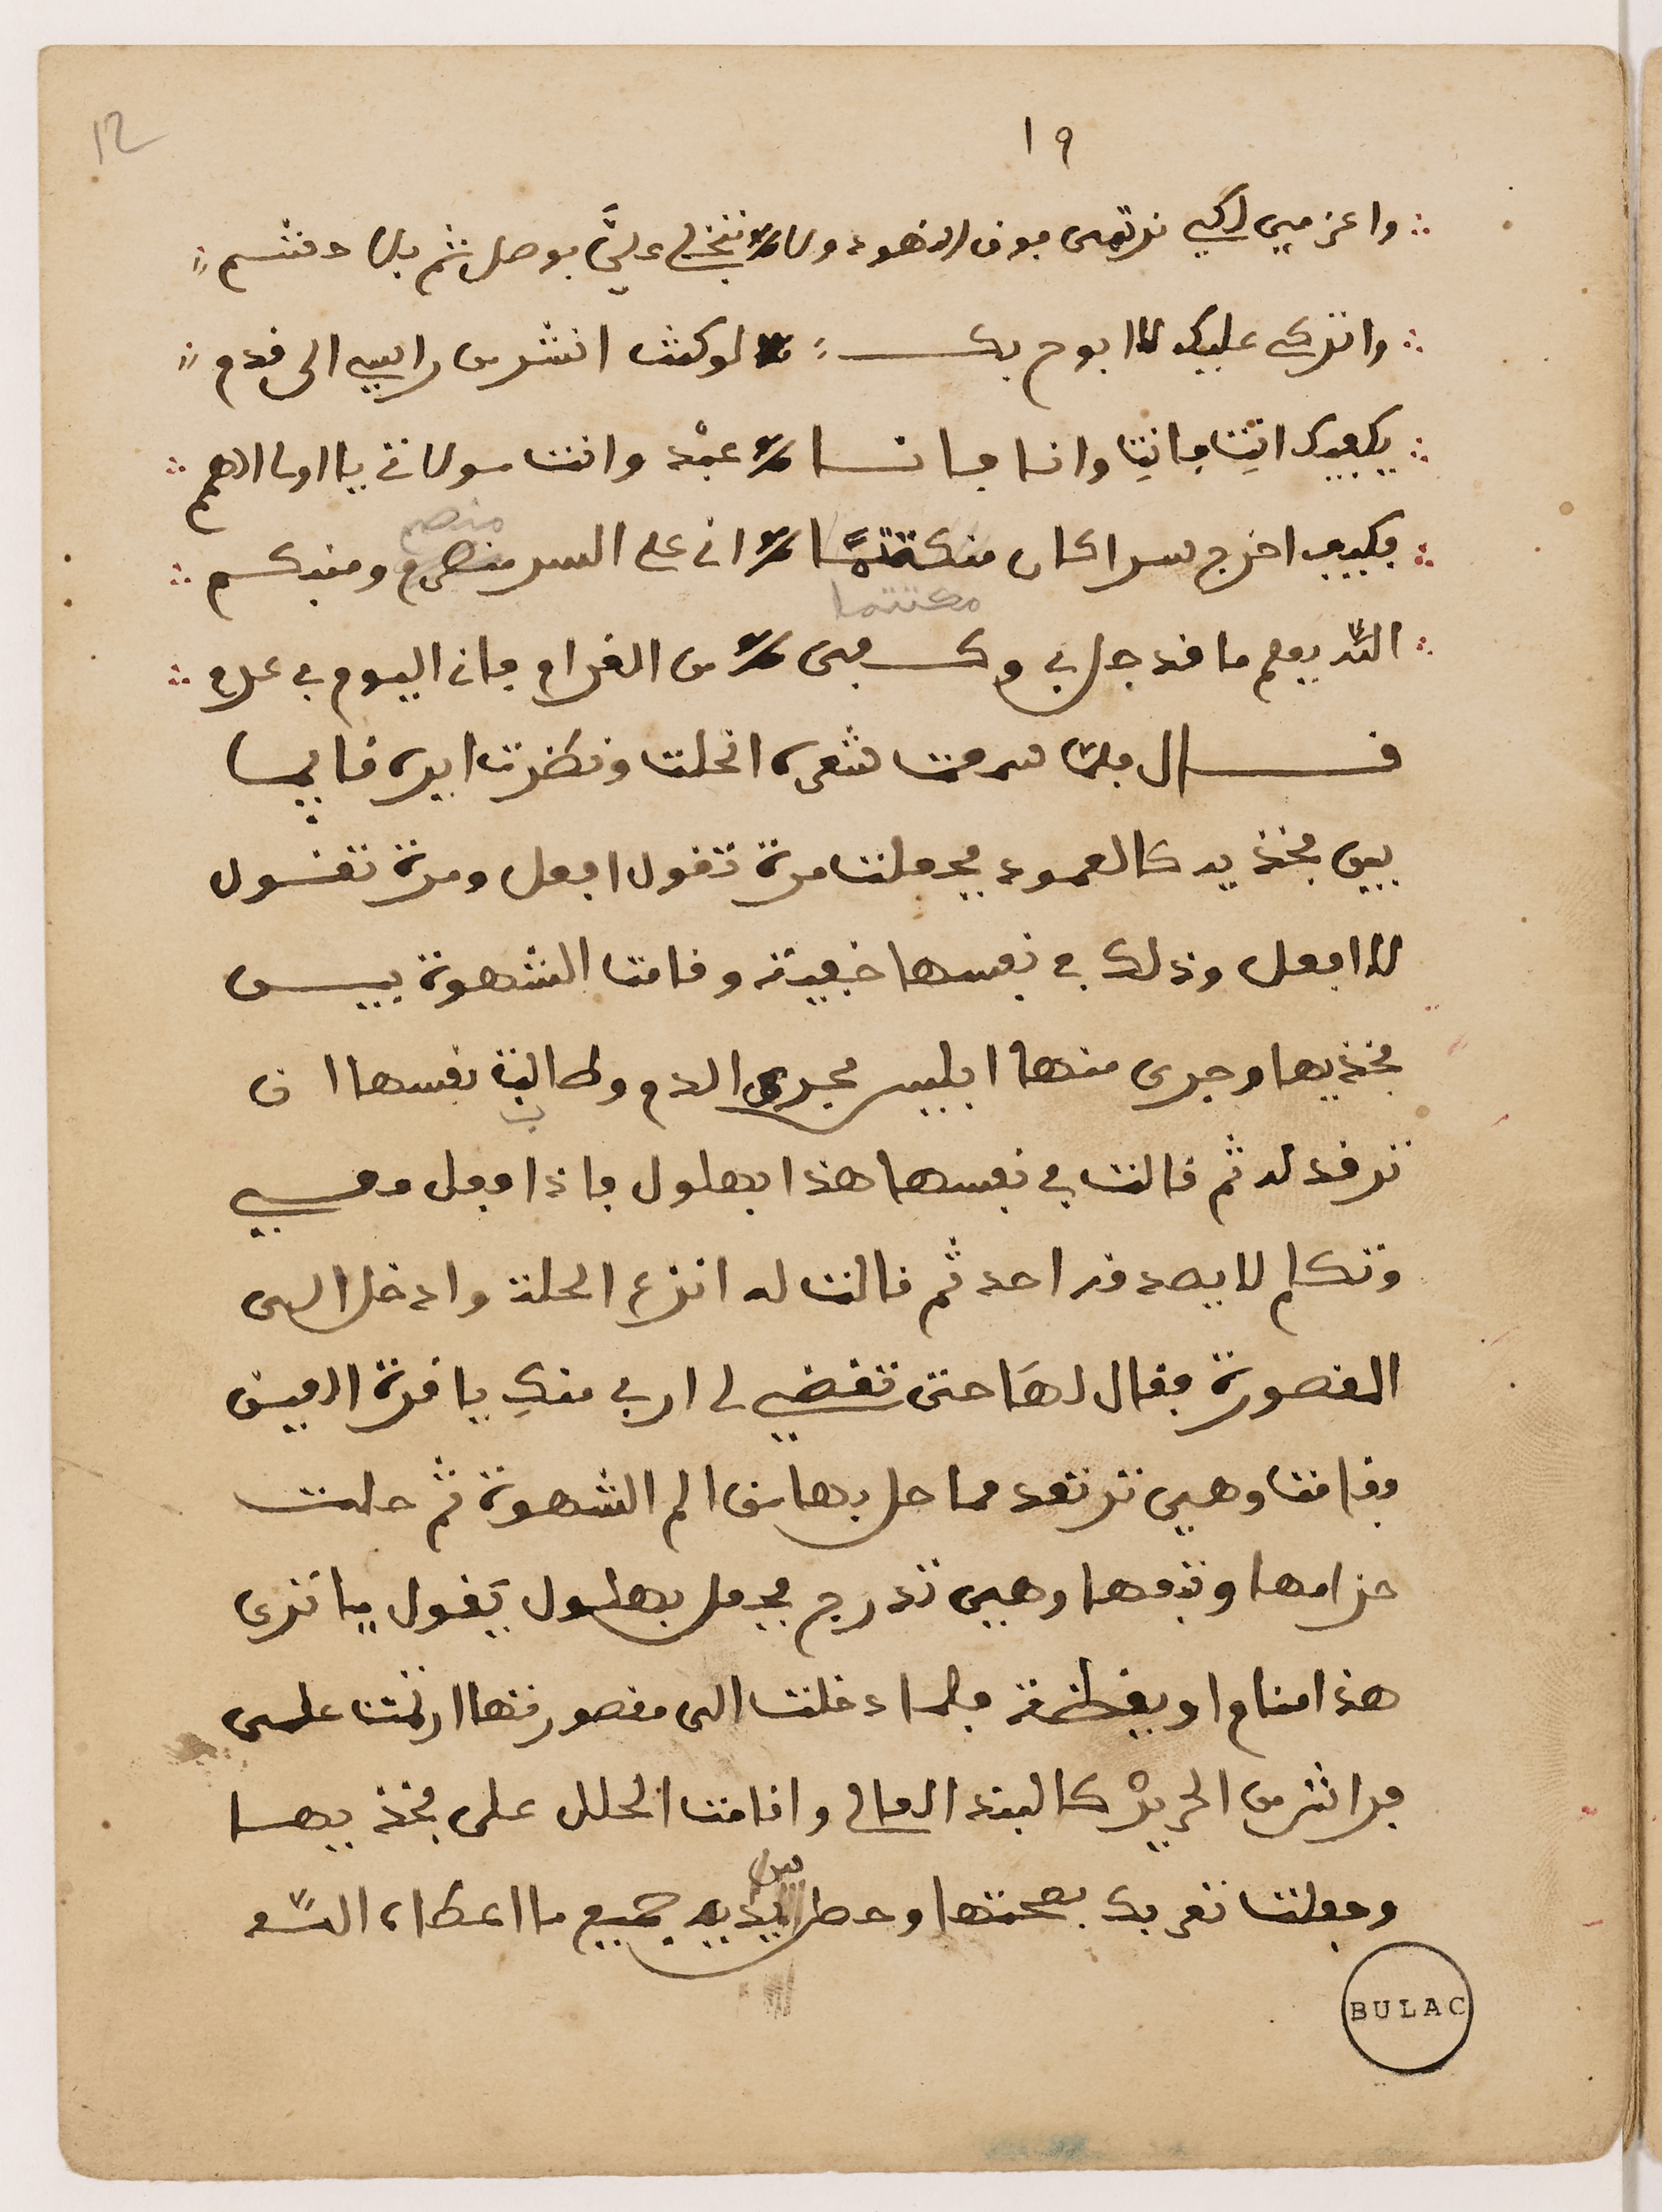 ١٩
12
واعزمي لكي ترتمي فوق النهود ولا تبخلي عليَّ بوصل ثم بلا حشم
وانزكى عليك لا ابوح بك لو كنت انشر من راسي الى قدم
يكفيك انتِ فانتِ وانا فانا عبْد وانت مولاتي يا اولى الهمم
فكيف اخرج سرا كان منكتمًا اني على السر منصرم ومنبكم
منصم
مكتتما
اللّه يعلم ما قد حل بي وكفى من الغرام فاني اليوم في عدم
قال فلمّا سمعت شعره انحلت ونظرت ايره قايما
بين فخذيه كالعمود فجعلت مرة تقول افعل ومرة تقول
لا افعل وذلك في نفسها خفية وقامت الشهوة بين
فخذيها وجرى منها ابليس مجرى الدم وطالبة نفسها ان
ب
ترقد له ثم قالت في نفسها هذا بهلول فاذا فعل معي
وتكلم لا يصدقه احد ثم قالت له انزع الحلة وادخل الى
المقصورة فقال لهَا حتى تقضي لي اربي منكِ يا قرة العين
فقامت وهي ترتعد مما حل بها من الم الشهوة ثم حلت
حزامها وتبعها وهي تدرج فجعل بهلول يَقول يا ترى
هذا منام او يقظة فلما دخلت الى مقصورتها ارتمت على
فراش من الحريْر كالبند العالي واقامت الحلل على فخذيها
وجعلت تفريك بصحتها وحطت بين يديه جميع ما اعطاه اللّه
BULAC